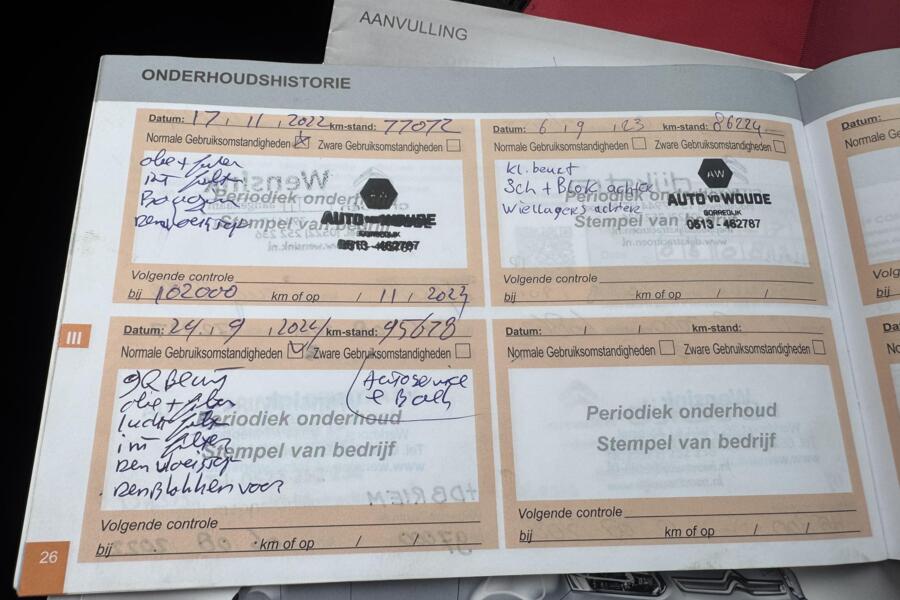 AANVULLING
ONDERHOUDSHISTORIE
Datum: 17, 11, 2022 km-stand: 77072
Normale Gebruiksomstandigheden Zware Gebruiksomstandigheden
olie + filter
int filter
Remvloeistof
Periodiek onderhoud
Stempel van bedrijf
AW
AUTO vd WOUDE
GORREDIJK
0513 - 462787
Volgende controle
bij 102000 km of op / 11, 2023
Datum: 6, 9, 23 km-stand: 86224
Normale Gebruiksomstandigheden Zware Gebruiksomstandigheden
kl. beurt
Sch + Blok achter
Wiellagers achter
Periodiek onderhoud
Stempel van bedrijf
AW
AUTO vd WOUDE
GORREDIJK
0513 - 462787
Volgende controle
bij km of op / /
III
Datum: 24, 9, 2024 km-stand: 95678
Normale Gebruiksomstandigheden Zware Gebruiksomstandigheden
GR Beurt
olie + filter
lucht filter
int filter
Rem vloeistof
RemBlokken voor
Autoservice
Periodiek onderhoud
Stempel van bedrijf
Volgende controle
bij km of op / /
Datum: / / km-stand:
Normale Gebruiksomstandigheden Zware Gebruiksomstandigheden
Periodiek onderhoud
Stempel van bedrijf
Volgende controle
bij km of op / /
26
Datum:
Normale
Volg
bij
Datum: